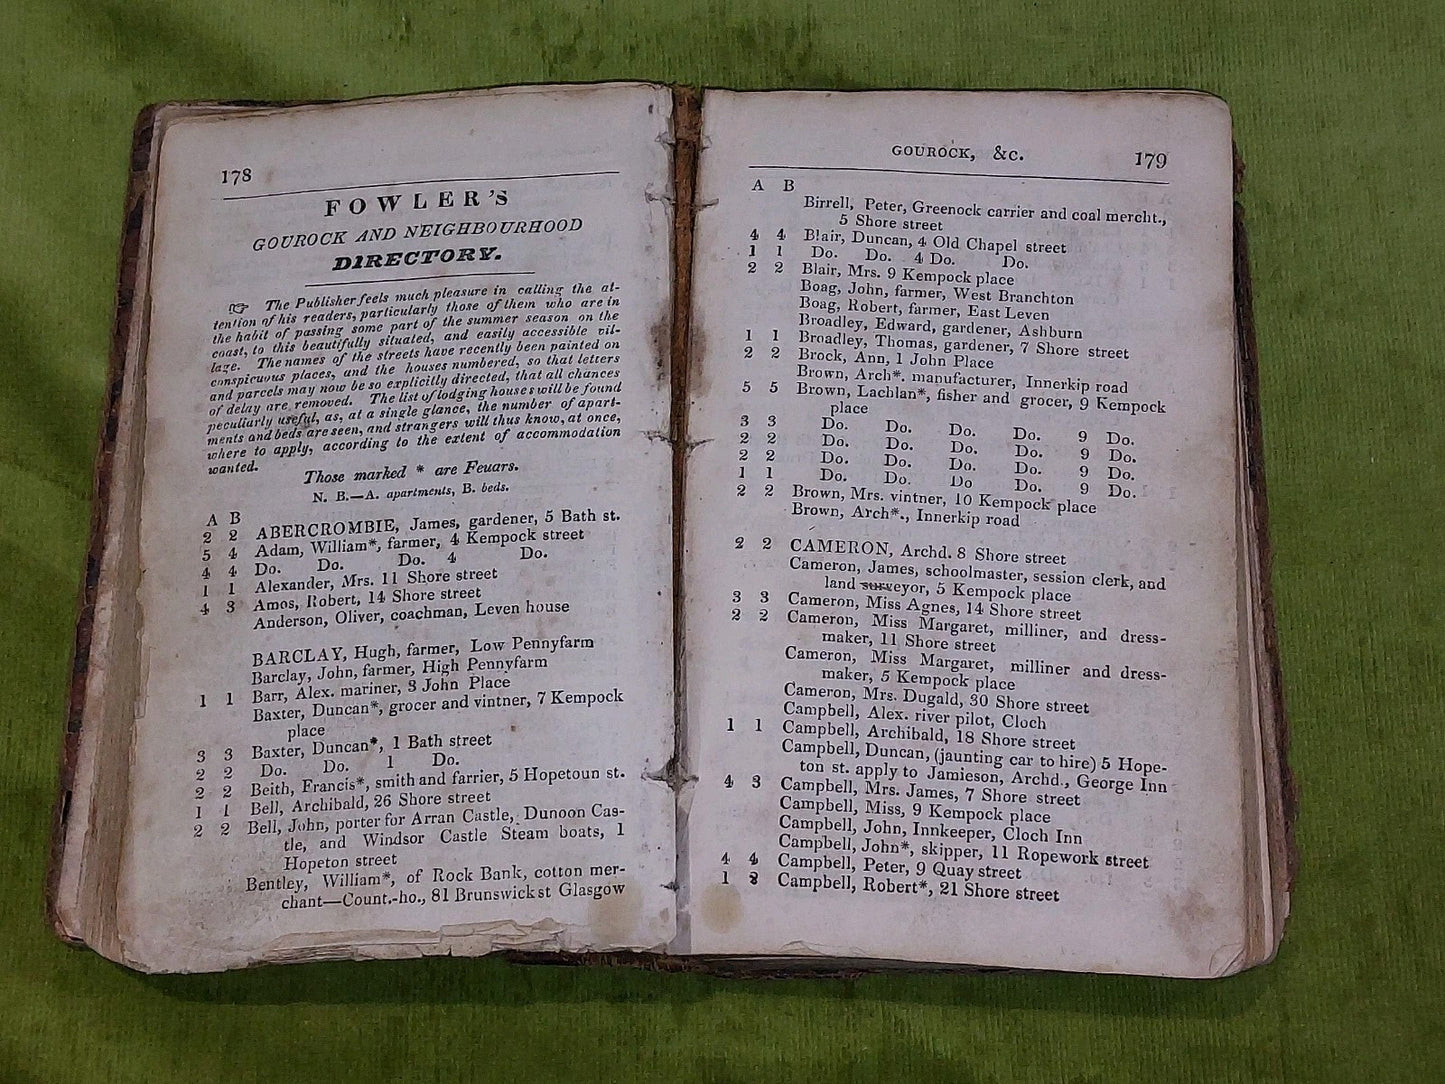 178
FOWLER'S
GOUROCK AND NEIGHBOURHOOD
DIRECTORY.
☞ The Publisher feels much pleasure in calling the at-
tention of his readers, particularly those of them who are in
the habit of passing some part of the summer season on the
coast, to this beautifully situated, and easily accessible vil-
lage. The names of the streets have recently been painted on
conspicuous places, and the houses numbered, so that letters
and parcels may now be so explicitly directed, that all chances
of delay are removed. The list of lodging houses will be found
peculiarly useful, as, at a single glance, the number of apart-
ments and beds are seen, and strangers will thus know, at once,
where to apply, according to the extent of accommodation
wanted.
Those marked * are Feuars.
N. B.—A. apartments, B. beds.
A B
2 2 ABERCROMBIE, James, gardener, 5 Bath st.
5 4 Adam, William*, farmer, 4 Kempock street
4 4 Do. Do. Do. 4 Do.
1 1 Alexander, Mrs. 11 Shore street
4 3 Amos, Robert, 14 Shore street
Anderson, Oliver, coachman, Leven house
BARCLAY, Hugh, farmer, Low Pennyfarm
Barclay, John, farmer, High Pennyfarm
1 1 Barr, Alex. mariner, 3 John Place
Baxter, Duncan*, grocer and vintner, 7 Kempock
place
3 3 Baxter, Duncan*, 1 Bath street
2 2 Do. Do. 1 Do.
2 2 Beith, Francis*, smith and farrier, 5 Hopetoun st.
1 1 Bell, Archibald, 26 Shore street
2 2 Bell, John, porter for Arran Castle, Dunoon Cas-
tle, and Windsor Castle Steam boats, 1
Hopeton street
Bentley, William*, of Rock Bank, cotton mer-
chant—Count.-ho., 81 Brunswick st Glasgow
GOUROCK, &c. 179
A B
Birrell, Peter, Greenock carrier and coal mercht.,
5 Shore street
4 4 Blair, Duncan, 4 Old Chapel street
1 1 Do. Do. 4 Do. Do.
2 2 Blair, Mrs. 9 Kempock place
Boag, John, farmer, West Branchton
Boag, Robert, farmer, East Leven
Broadley, Edward, gardener, Ashburn
1 1 Broadley, Thomas, gardener, 7 Shore street
2 2 Brock, Ann, 1 John Place
Brown, Arch*. manufacturer, Innerkip road
5 5 Brown, Lachlan*, fisher and grocer, 9 Kempock
place
3 3 Do. Do. Do. Do. 9 Do.
2 2 Do. Do. Do. Do. 9 Do.
2 2 Do. Do. Do. Do. 9 Do.
1 1 Do. Do. Do Do. 9 Do.
2 2 Brown, Mrs. vintner, 10 Kempock place
Brown, Arch*., Innerkip road
2 2 CAMERON, Archd. 8 Shore street
Cameron, James, schoolmaster, session clerk, and
land surveyor, 5 Kempock place
3 3 Cameron, Miss Agnes, 14 Shore street
2 2 Cameron, Miss Margaret, milliner, and dress-
maker, 11 Shore street
Cameron, Miss Margaret, milliner and dress-
maker, 5 Kempock place
Cameron, Mrs. Dugald, 30 Shore street
Campbell, Alex. river pilot, Cloch
1 1 Campbell, Archibald, 18 Shore street
Campbell, Duncan, (jaunting car to hire) 5 Hope-
ton st. apply to Jamieson, Archd., George Inn
4 3 Campbell, Mrs. James, 7 Shore street
Campbell, Miss, 9 Kempock place
Campbell, John, Innkeeper, Cloch Inn
Campbell, John*, skipper, 11 Ropework street
4 4 Campbell, Peter, 9 Quay street
1 2 Campbell, Robert*, 21 Shore street